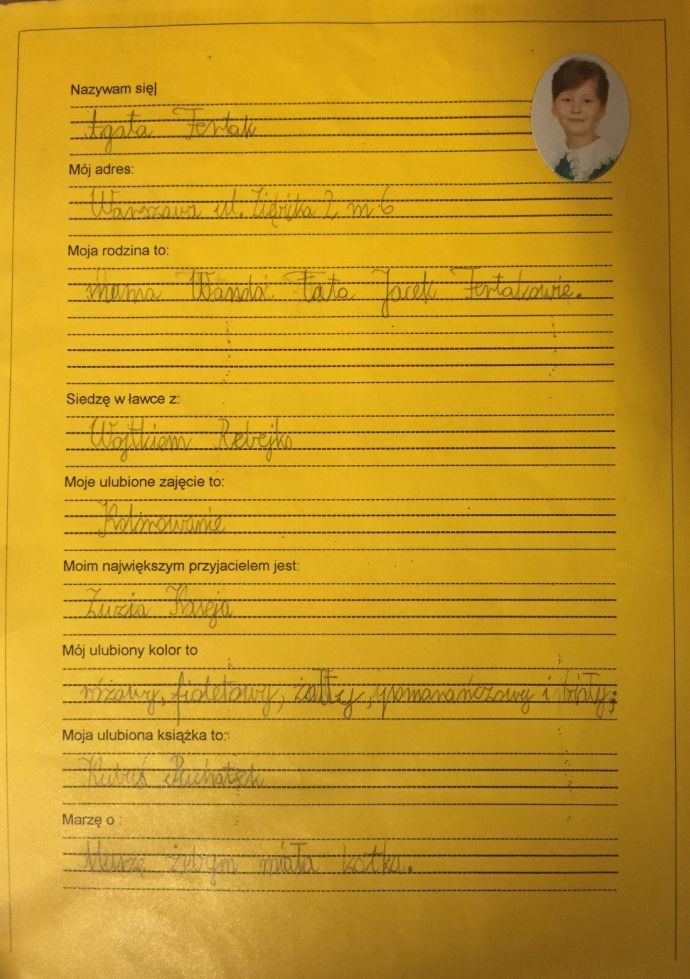 Nazywam się|
Agata Fertak
Mój adres:
Warszawa ul. 2 m 6
Moja rodzina to:
Mama Wanda Tata Jacek Fertakowie.
Siedzę w ławce z:
Wojtkiem Rebejko
Moje ulubione zajęcie to:
Kolorowanie
Moim największym przyjacielem jest:
Zuzia
Mój ulubiony kolor to
różowy, fioletowy, żółty, pomarańczowy i biały;
Moja ulubiona książka to:
Kubuś Puchatek
Marzę o :
Marzę żebym miała kotka.